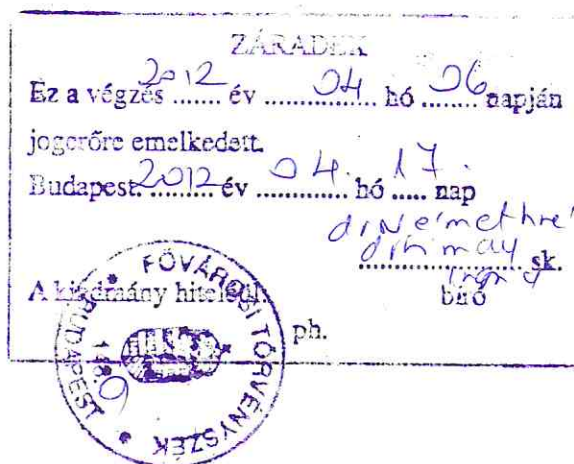 ZÁRADÉK
Ez a végzés 2012 év 04 hó 06 napján
jogerőre emelkedett.
Budapest. 2012 év 04. hó 17. nap
sk.
A kiadmány hiteléül: bíró
ph.
FŐVÁROSI TÖRVÉNYSZÉK
BUDAPEST